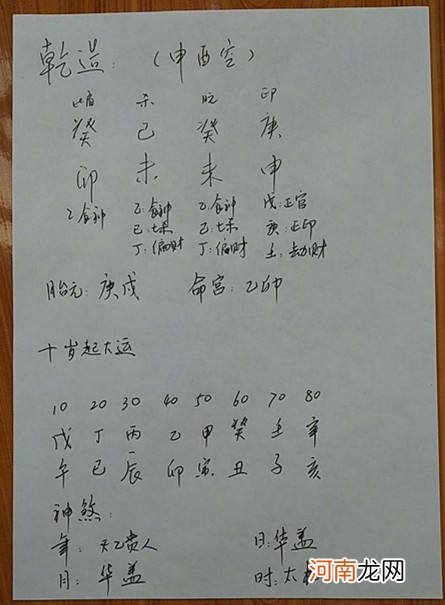 乾造：（申酉空）
比肩 杀 印
癸 己 癸 庚
卯 未 未 申
乙食神 乙:食神 乙:食神 戊:正官
己:七杀 己:七杀 庚:正印
丁:偏财 丁:偏财 壬:劫财
胎元：庚戌 命宫：乙卯
十岁起大运
10 20 30 40 50 60 70 80
戊 丁 丙 乙 甲 癸 壬 辛
午 巳 辰 卯 寅 丑 子 亥
神煞：
年：天乙贵人 日:华盖
月：华盖 时:太
河南龙网